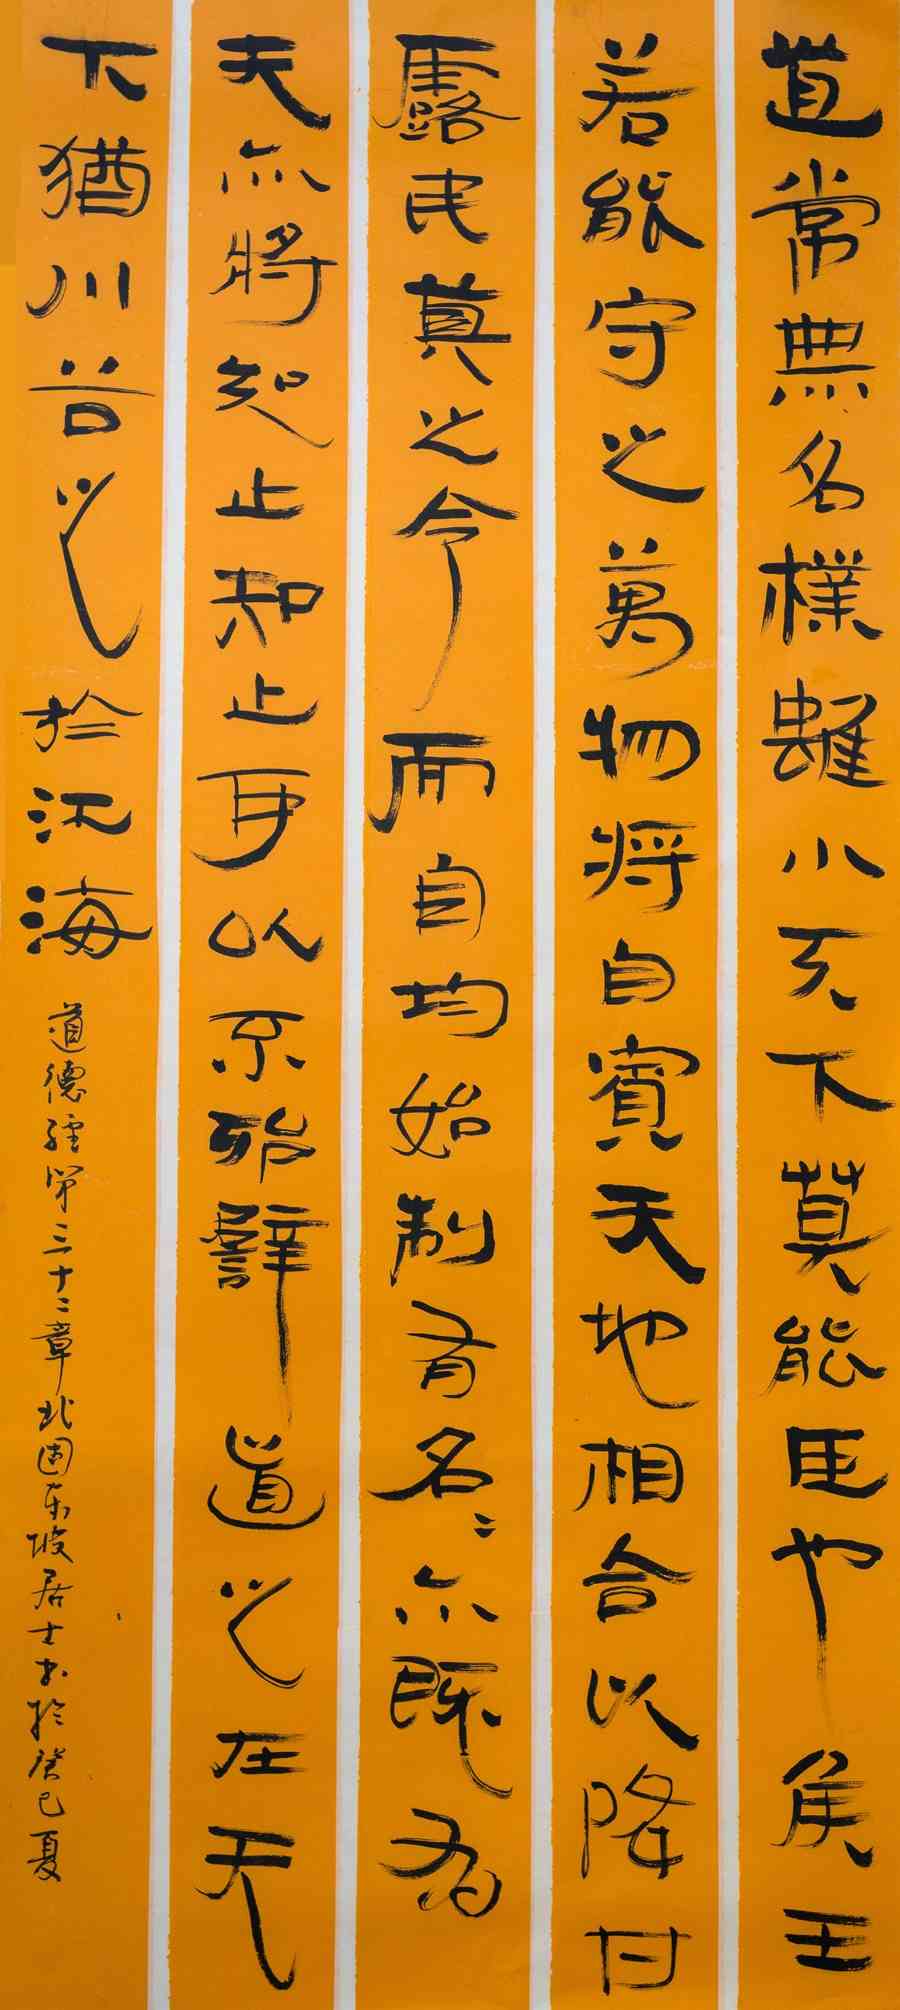 道常無名樸雖小天下莫能臣也侯王
若能守之萬物將自賓天地相合以降甘
露民莫之令而自均始制有名〻亦既有
夫亦將知止知止所以不殆譬道之在天
下猶川谷之於江海
道德經第三十二章北固東坡居士書於癸巳夏